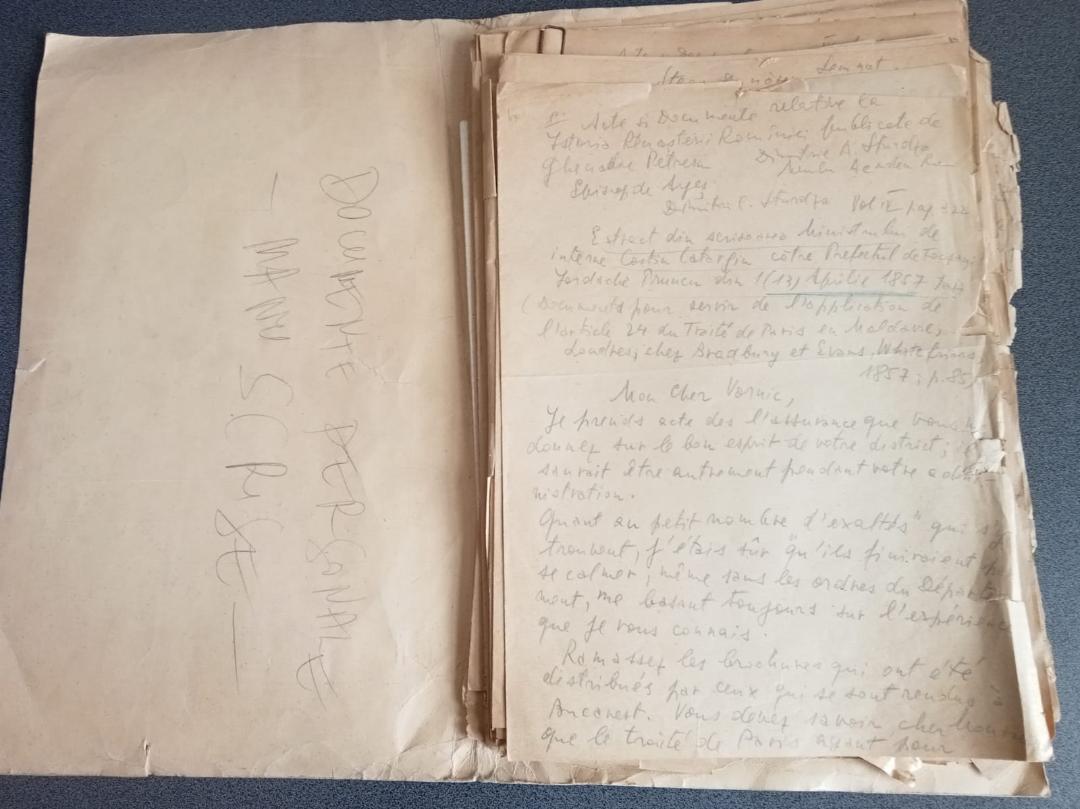 DOCUMENTE PERSONALE
— MANUSCRISE —
semnat.
Acte si Documente relative la
Istoria Renasterii României publicate de
Ghenadie Petrescu Dimitrie A. Sturdza
Episcop de Argeș
Dimitrie C. Sturdza Vol IV pag
Extract din scrisoarea Ministrului de
interne Costin Catargiu către Prefectul de Focșani
Iordache Pruncu din 1(13) Aprilie 1857 Iași
(Documents pour servir de l'application de
l'article 24 du Traité de Paris en Moldavie,
Londres, chez Bradbury et Evans, Whitefriars
1857; p. 85
Mon cher Vornic,
Je prends acte des l'assurance que vous
donnez sur le bon esprit de votre district; il
saurait être autrement pendant votre admi-
nistration.
Quant au petit nombre d'exaltés" qui s'y
trouvent, j'étais sûr "qu'ils finiraient
se calmer, même sans les ordres du Départe
ment, me basant toujours sur l'expérience
que je vous connais.
Ramassez les brochures qui ont été
distribués par ceux qui se sont rendus à
Bucarest. Vous devez savoir cher
que le traité de Paris ayant pour